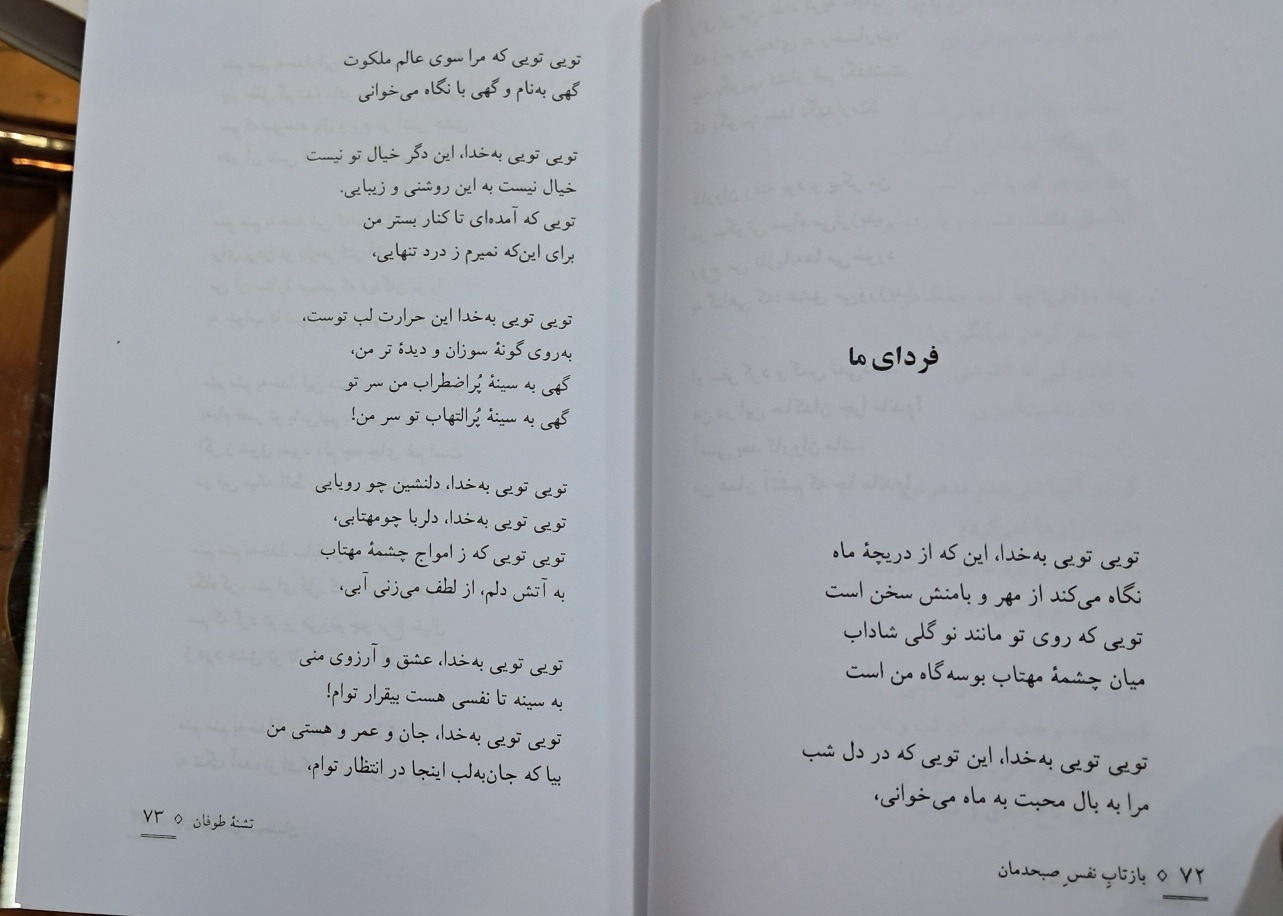 فردای ما
تویی تویی به‌خدا، این که از دریچهٔ ماه
نگاه می‌کند از مهر و بامنش سخن است
تویی که روی تو مانند نو گلی شاداب
میان چشمهٔ مهتاب بوسه‌گاه من است
تویی تویی به‌خدا، این تویی که در دل شب
مرا به بال محبت به ماه می‌خوانی،
۷۲ ◊ بازتابِ نفسِ صبحدمان
تویی تویی که مرا سوی عالم ملکوت
گهی به‌نام و گهی با نگاه می‌خوانی
تویی تویی به‌خدا، این دگر خیال تو نیست
خیال نیست به این روشنی و زیبایی.
تویی که آمده‌ای تا کنار بستر من
برای این‌که نمیرم ز درد تنهایی،
تویی تویی به‌خدا این حرارت لب توست،
به‌روی گونهٔ سوزان و دیدهٔ تر من،
گهی به سینهٔ پُراضطراب من سر تو
گهی به سینهٔ پُرالتهاب تو سر من!
تویی تویی به‌خدا، دلنشین چو رویایی
تویی تویی به‌خدا، دلربا چومهتابی،
تویی تویی که ز امواج چشمهٔ مهتاب
به آتش دلم، از لطف می‌زنی آبی،
تویی تویی به‌خدا، عشق و آرزوی منی
به سینه تا نفسی هست بیقرار توام!
تویی تویی به‌خدا، جان و عمر و هستی من
بیا که جان‌به‌لب اینجا در انتظار توام،
تشنهٔ طوفان ◊ ۷۳